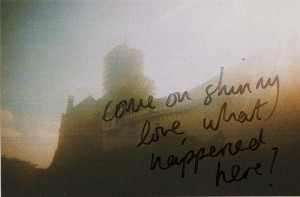 come on skinny
love, what
happened
here?